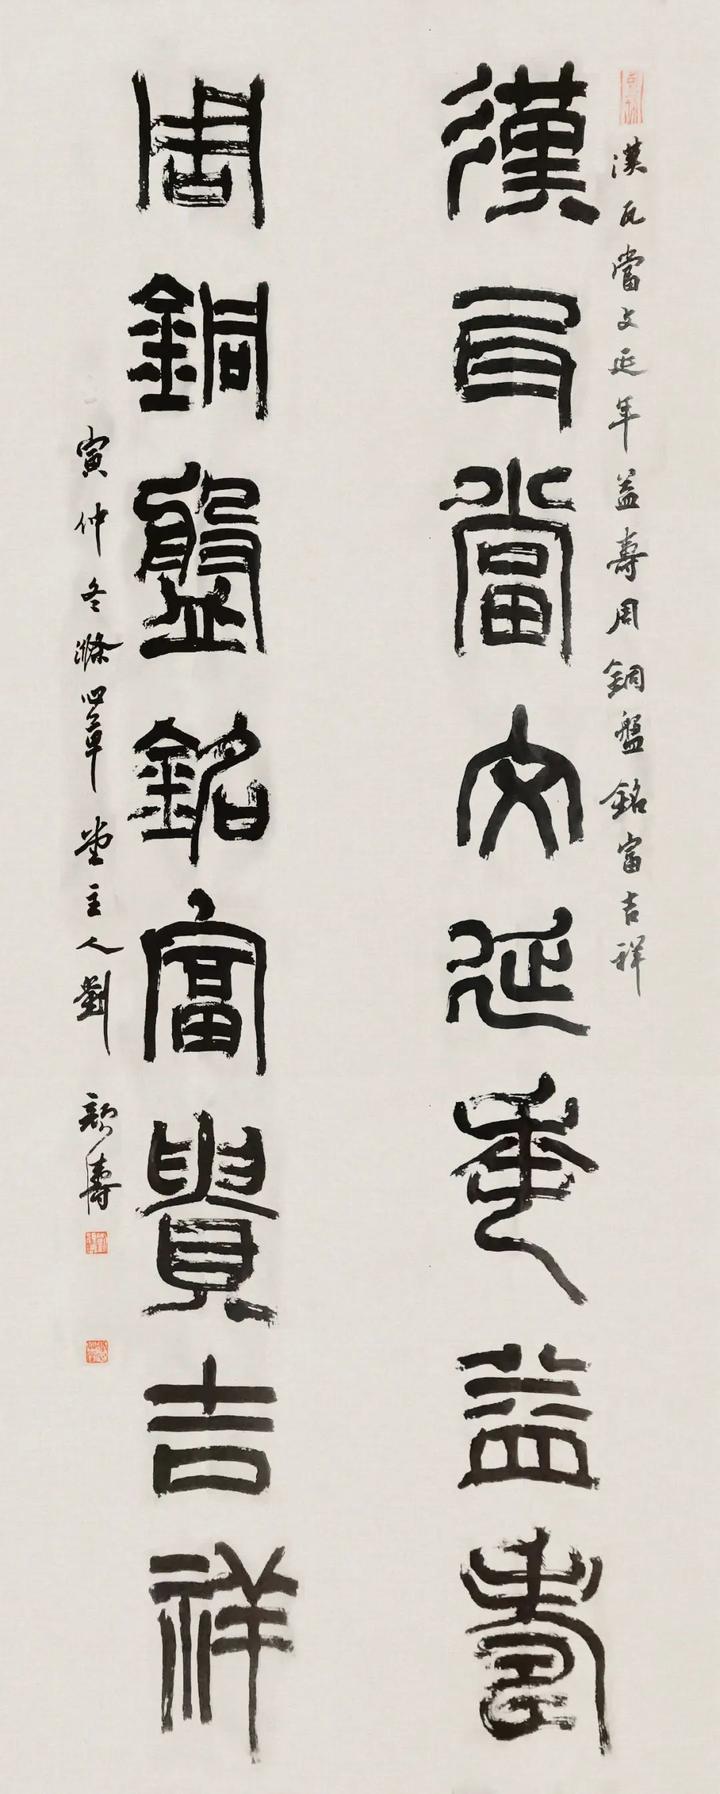 漢瓦當文延年益壽周銅盤銘富吉祥
漢瓦當文延年益壽
周銅盤銘富貴吉祥
寅仲冬滌心草堂主人劉顏濤